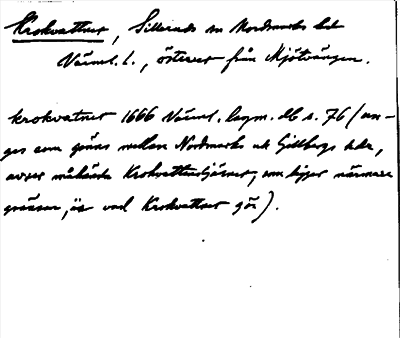 Krokvattnet, Silleruds sn Nordmarks hd
Värml. l., österut från Mjötvången.
Krokvatnet 1666 Värml. lagm. db s. 76 (an-
ges som gräns mellan Nordmarks och Gillbergs hdr,
avser måhända Krokvattnstjärnet, som ligger närmare
gränsen, än vad Krokvattnet gör).